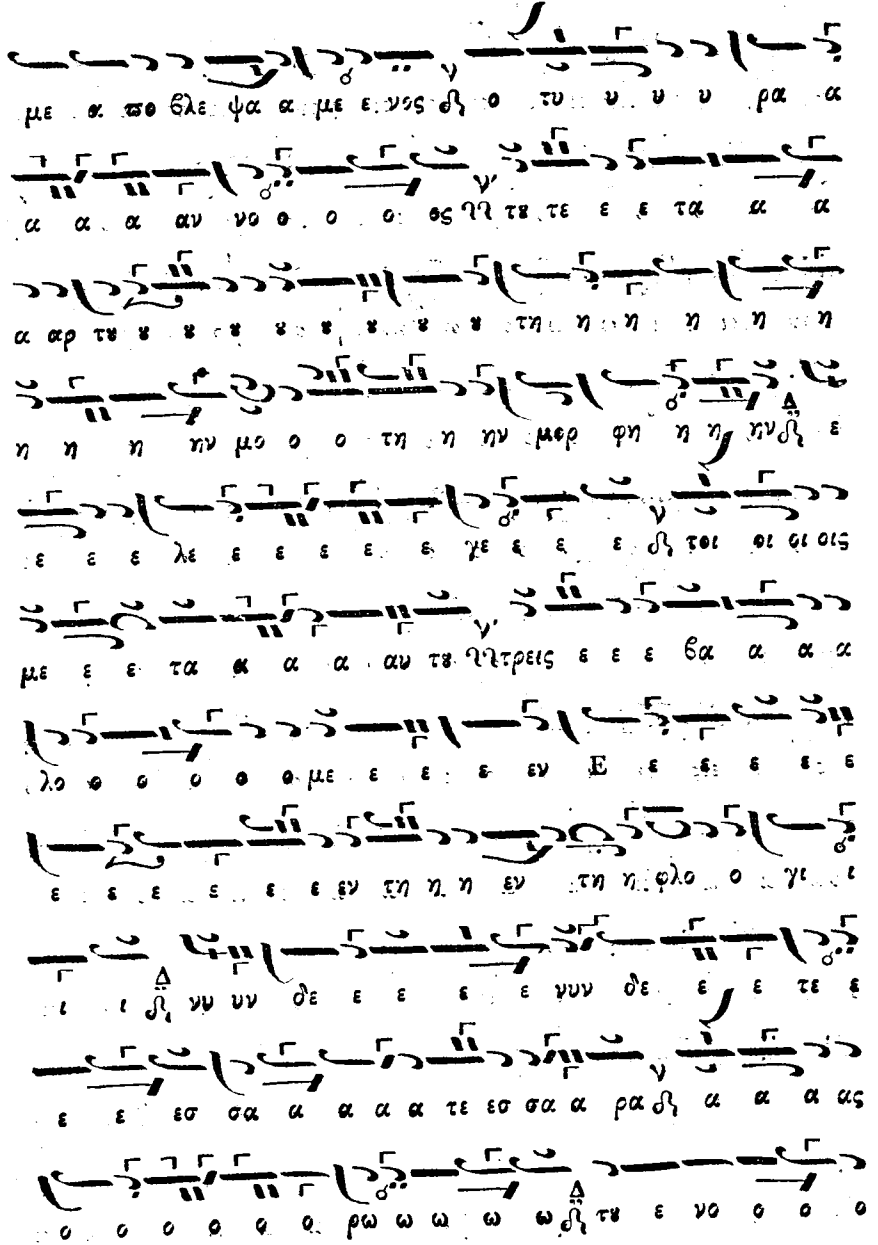 με α πο βλε ψα α με ε νος ο τυ υ υ υ ρα α
α α α αν νο ο ο ο ος τȣ τε ε ε τα α α
α αρ τȣ ȣ ȣ ȣ ȣ ȣ ȣ ȣ ȣ τη η η η η η
η η η ην μο ο ο τη η ην μορ φη η η ην Δ ε
ε ε ε λε ε ε ε ε ε γε ε ε ε τοι οι οι οις
με ε ε τα α α α αυ τȣ τρεις ε ε ε βα α α α
λο ο ο ο ο ο με ε ε ε εν Ε ε ε ε ε ε
ε ε ε ε ε ε εν τη η η εν τη η φλο ο γι ι
ι ι Δ νυ υν δε ε ε ε ε νυν δε ε ε τε ε
ε ε εσ σα α α α α τε εσ σα α ρα α α α ας
ο ο ο ο ο ο ρω ω ω ω ω Δ τȣ ε νο ο ο ο